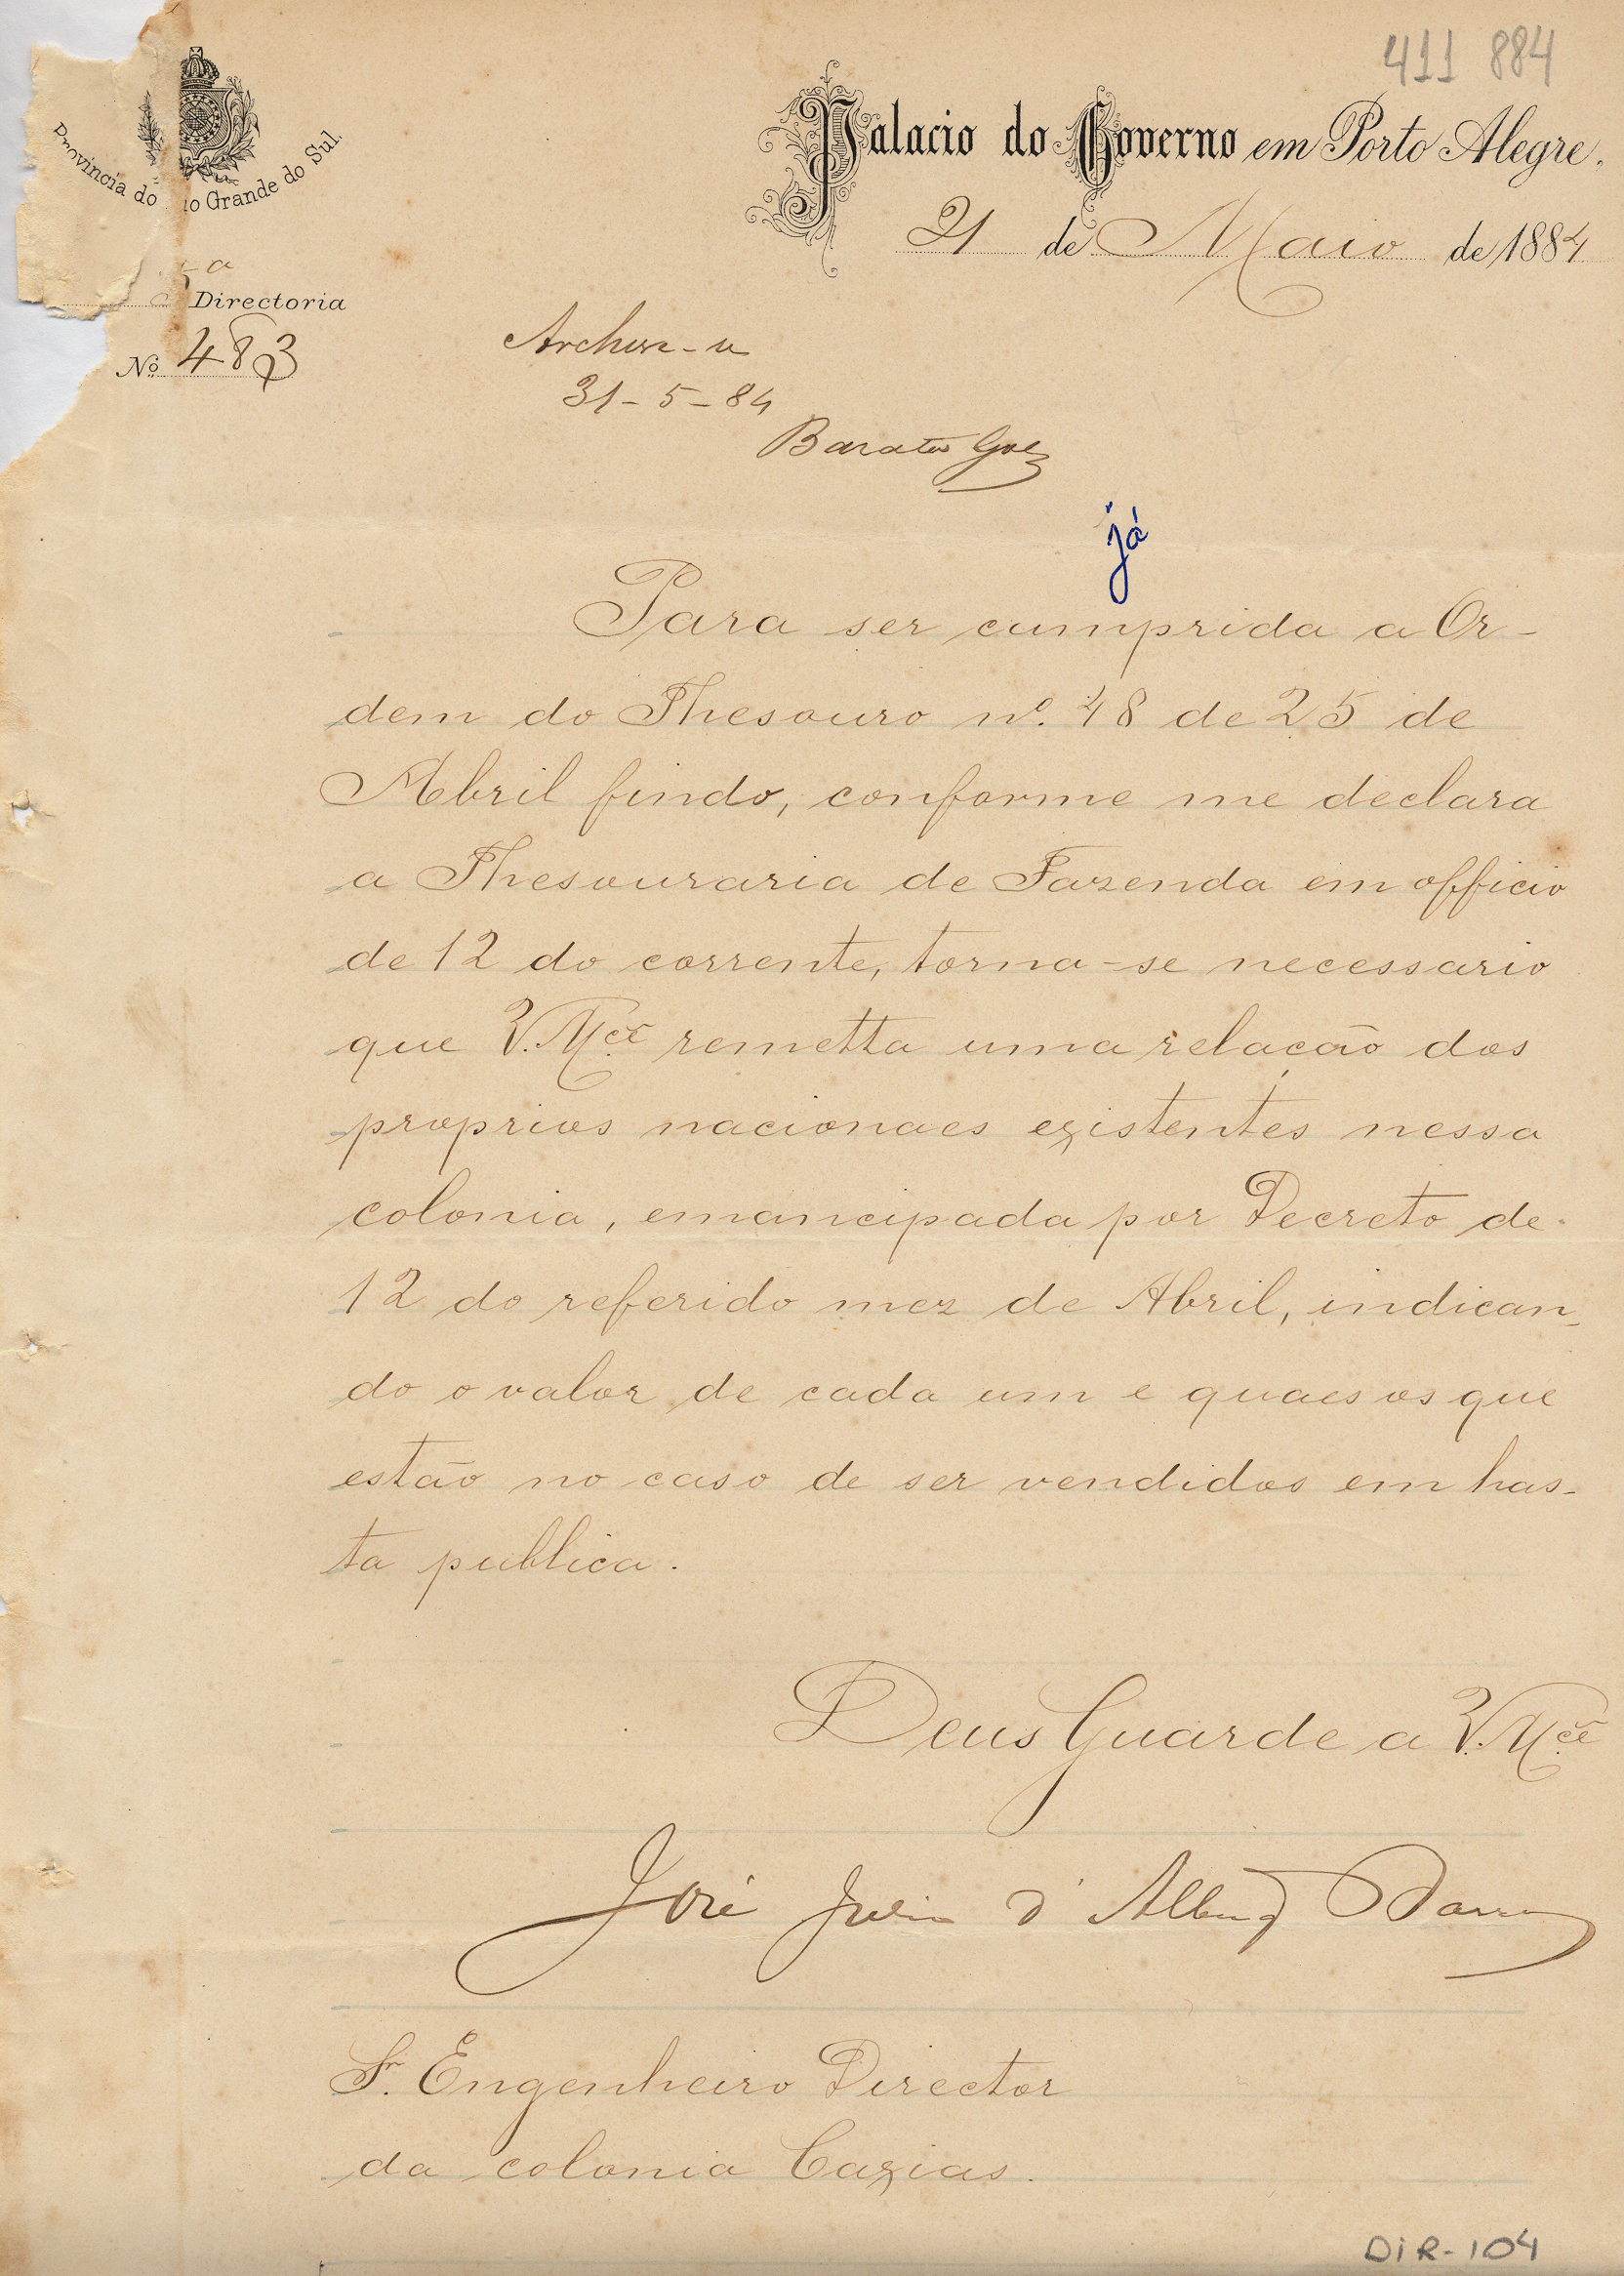 411 884
Provincia do io Grande do Sul.
Palacio do Governo em Porto Alegre,
21 de Maio de 1884
5ª Directoria
Nº 483
Archive-se
31-5-84
Barata Goes
já
Para ser cumprida a Or-
dem do Thesouro nº. 48 de 25 de
Abril findo, conforme me declara
a Thesouraria de Fazenda em officio
de 12 do corrente, torna-se necessario
que V. Mcê remetta uma relação dos
proprios nacionaes existentes nessa
colonia, emancipada por Decreto de
12 do referido mez de Abril, indican-
do o valor de cada um e quaes os que
estão no caso de ser vendidos em has-
ta publica.
Deus Guarde a V. Mcê
José Julio d' Albuqe Barros
Sr. Engenheiro Director
da colonia Caxias.
DIR-104